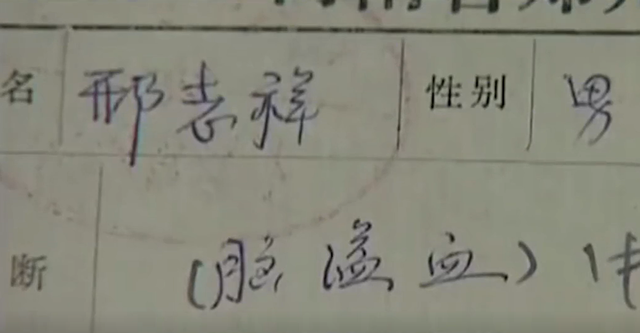 名 邢志祥 性别 男
断 (脑溢血)